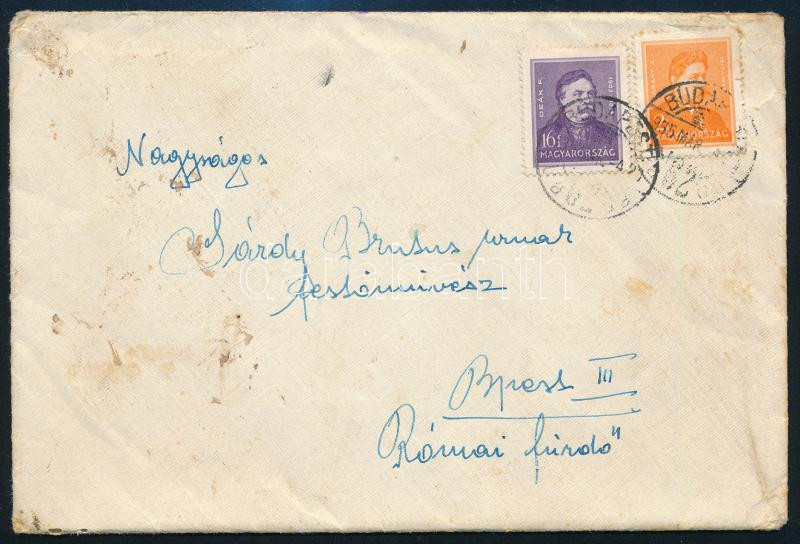 DEÁK F.
16f
MAGYARORSZÁG
MAGYARORSZÁG
BUDAPEST
BUDAP
Nagyságos
Sárdy Brutus urnak
festőművész
Bpest III
Római fürdő"
darabanth